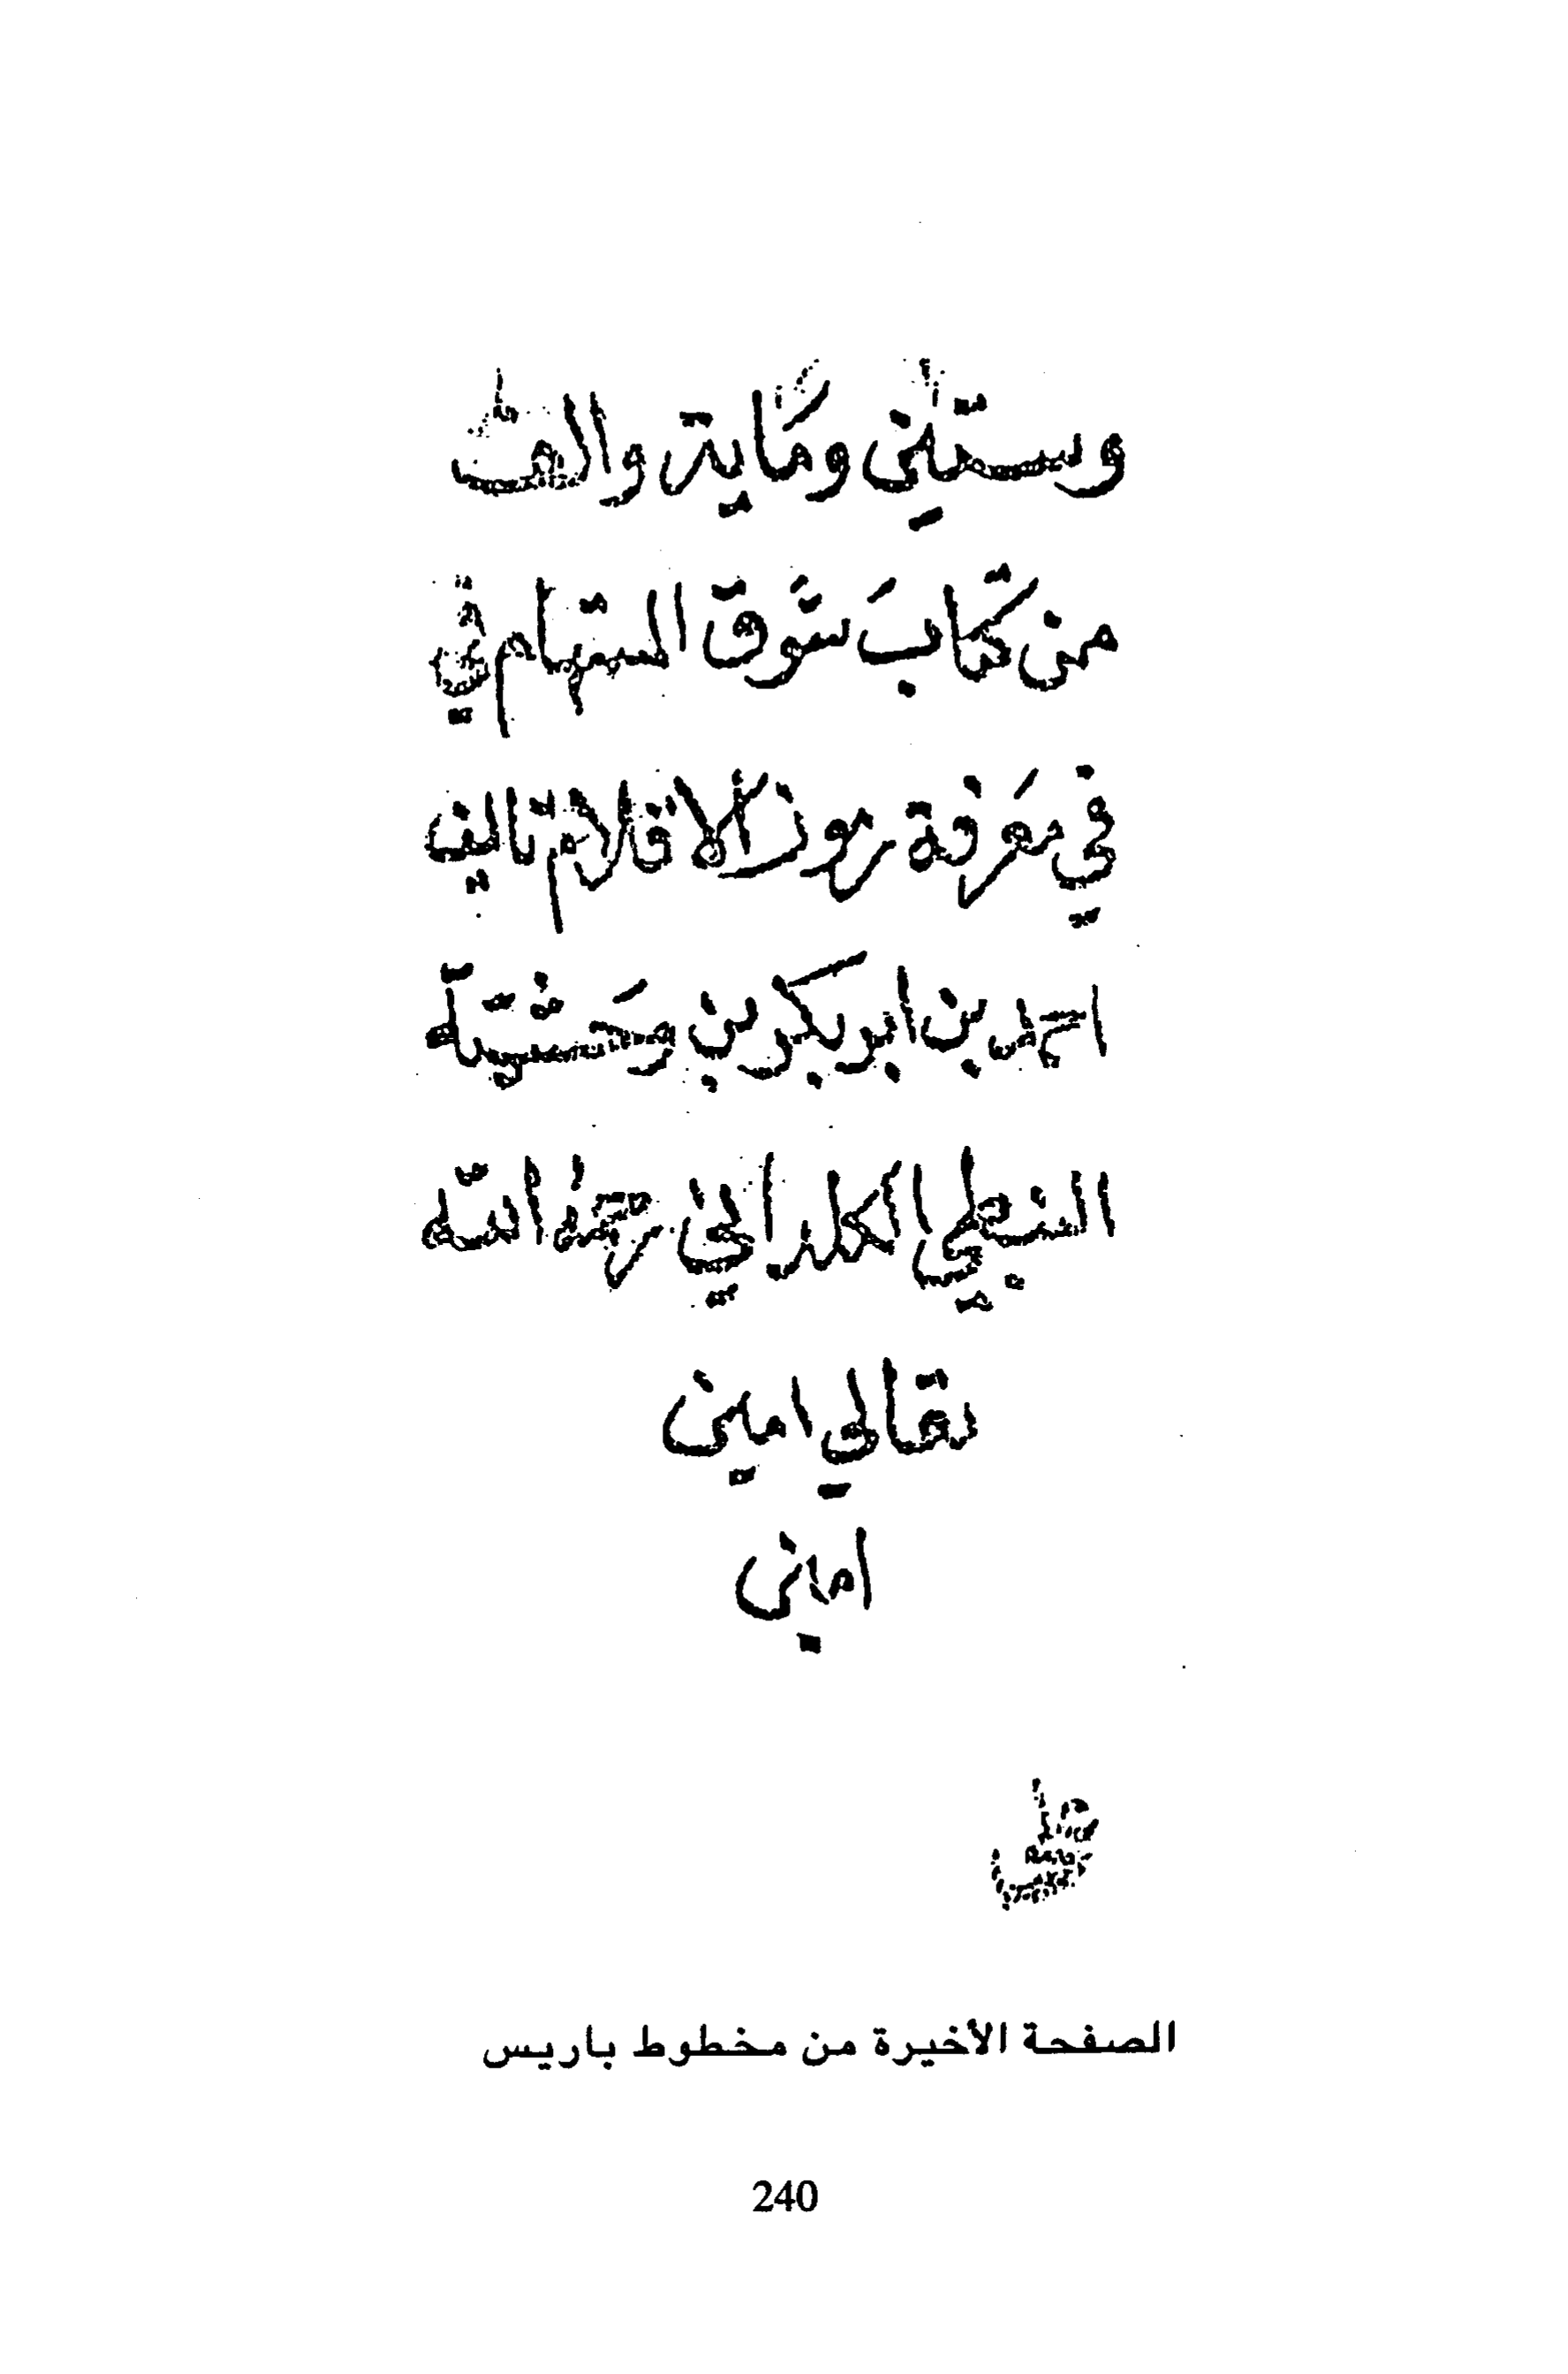 وستين وماية والف
من كتاب شوق المستهام في
في معرفة رموز الاقلام تاليف
احمد بن ابو بكر بن وحشية
النبطي الكلداني رحمه الله
تعالي امين
امين
الصفحة الأخيرة من مخطوط باريس
240